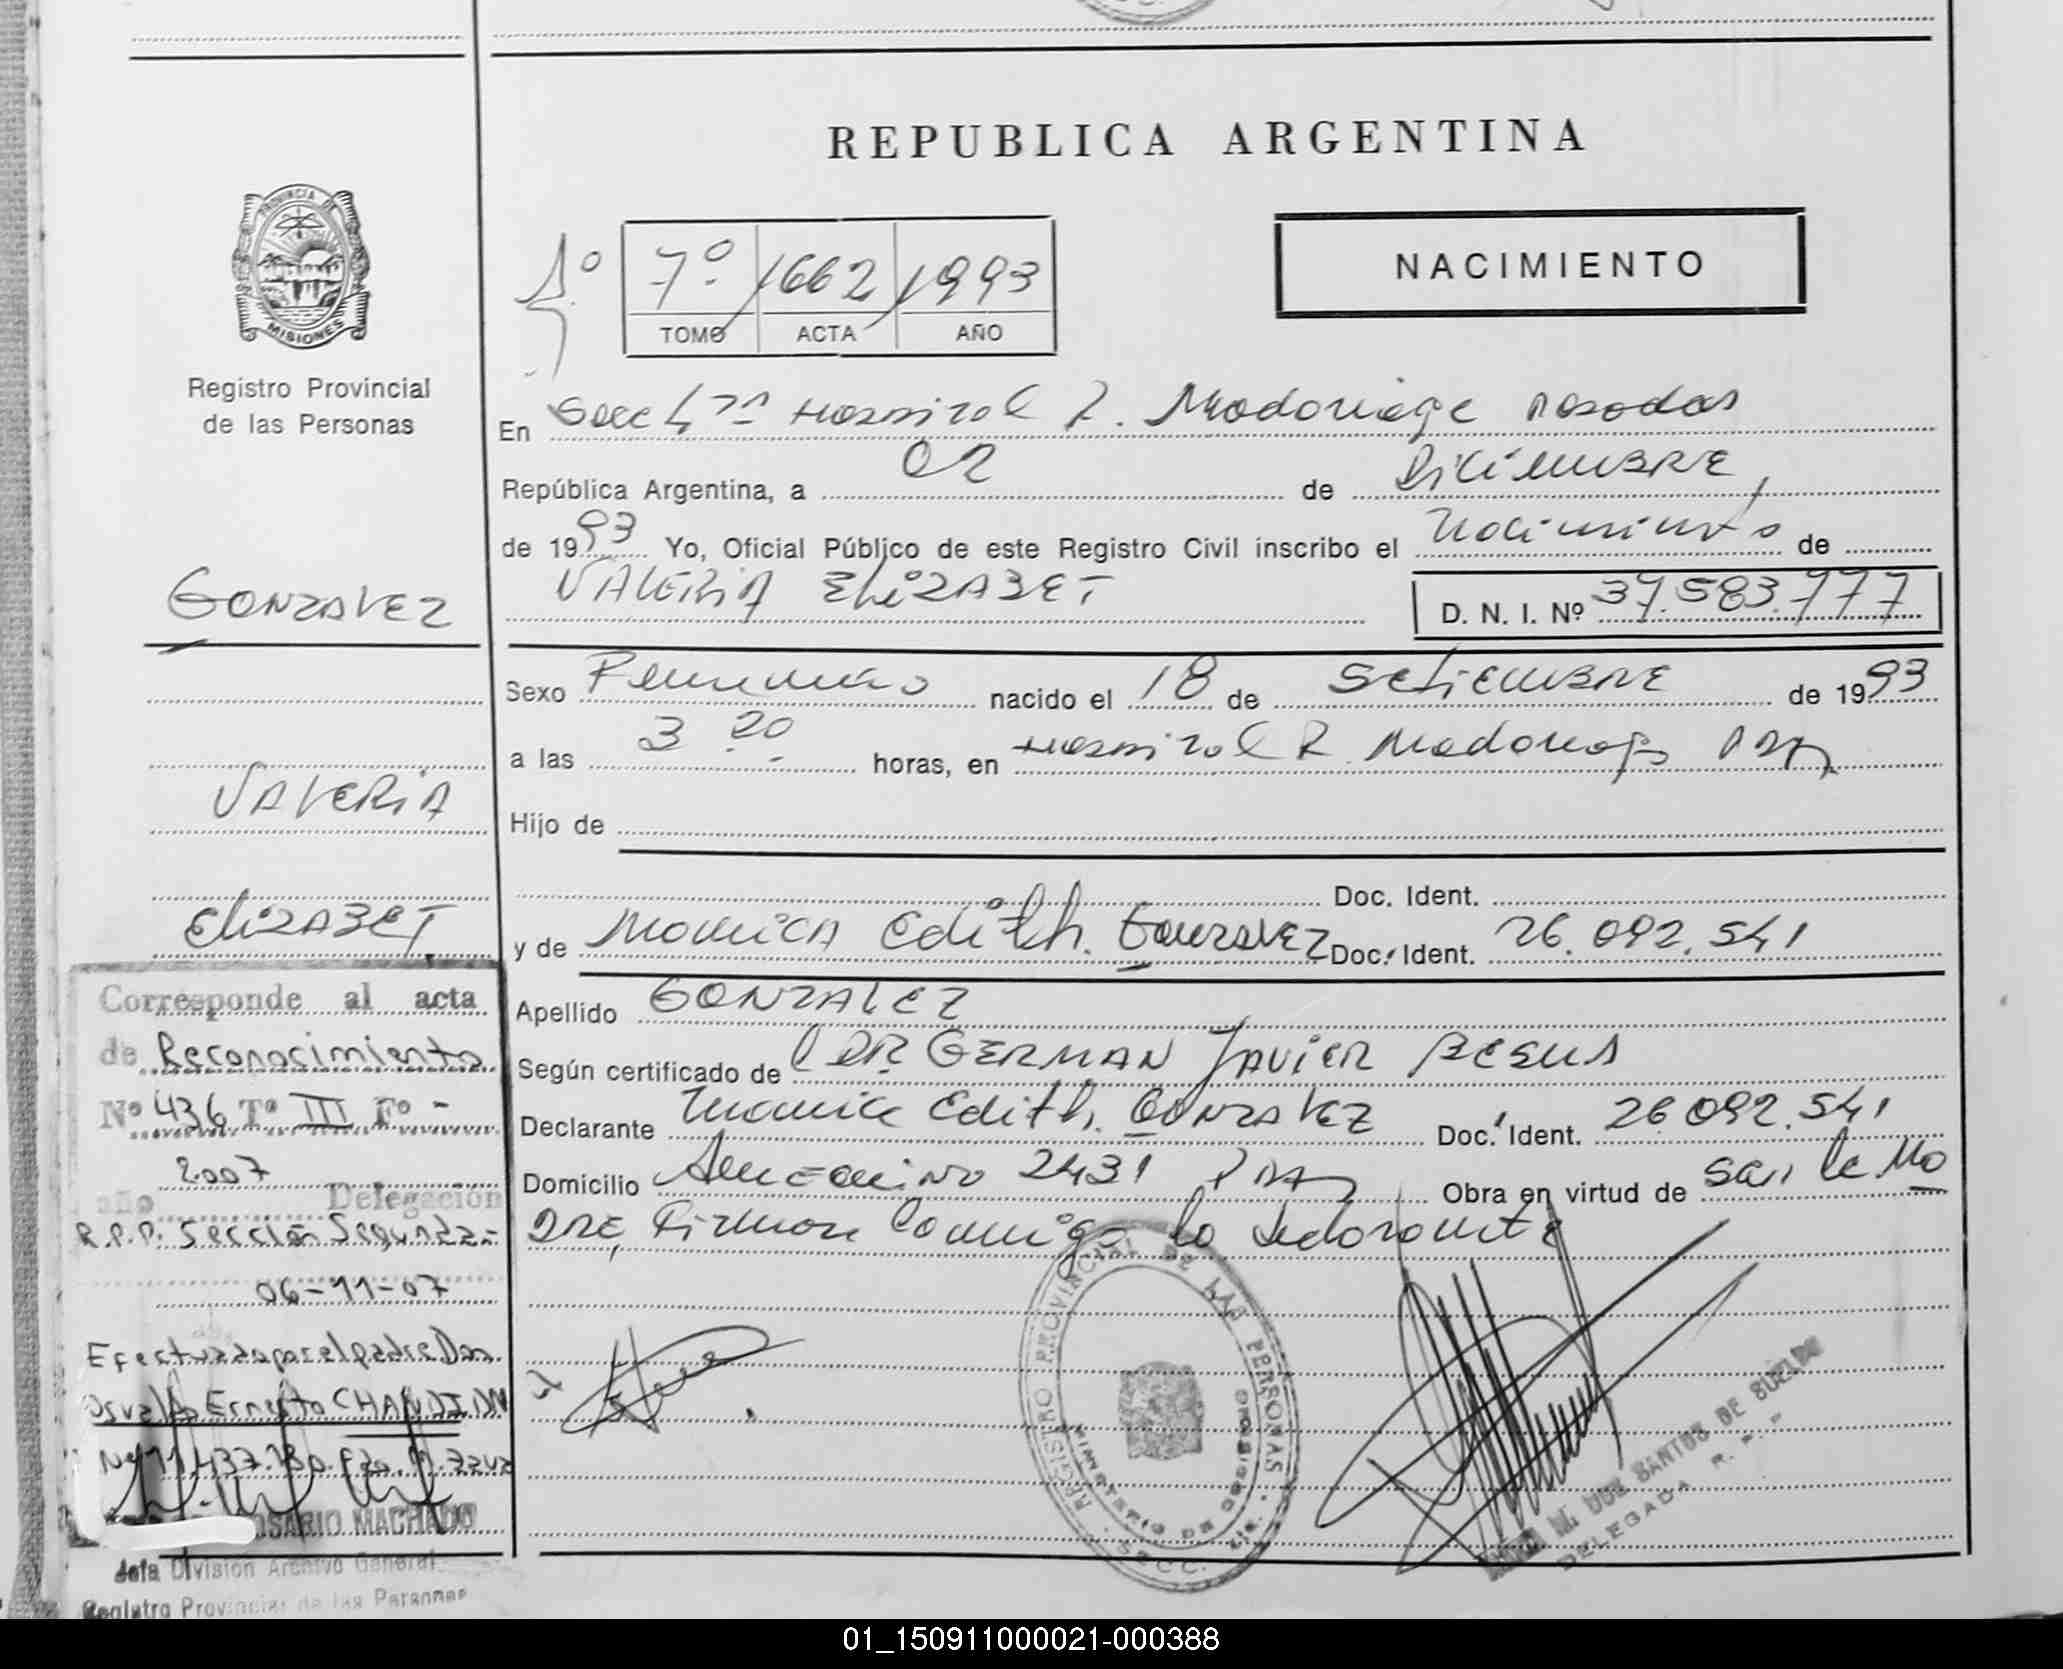 REPUBLICA ARGENTINA
PROVINCIA DE
MISIONES
Registro Provincial
de las Personas
1º 7º 1662 1993
TOMO ACTA AÑO
NACIMIENTO
En Secc 4ta Hospital R. Madariaga Posadas
República Argentina, a 02 de Diciembre,
de 1993 Yo, Oficial Público de este Registro Civil inscribo el Nacimiento de
VALERIA ELIZABET D. N. I. Nº 37.583.777
Sexo Femenino nacido el 18 de Setiembre de 1993
a las 3 20 horas, en Hospital R. Madariaga Pdas
Hijo de
Doc. Ident.
y de Monica Edith. Gonzalez Doc. Ident. 26.092.541
Apellido GONZALEZ
Según certificado de DR. GERMAN JAVIER
Declarante Monica Edith. GONZALEZ Doc. Ident. 26.092.541
Domicilio 2431 Pdas Obra en virtud de ser la Ma
dre, Firman Conmigo la declarante
GONZALEZ
VALERIA
ELIZABET
Corresponde al acta
de Reconocimiento
Nº 436 Tº III Fº -
2007
año Delegación
R.P.P. Sección Segunda-
06-11-07
Efectuada por el padre Don
Osvaldo Ernesto
11.437.180
ROSARIO MACHADO
Jefa División Archivo General
Registro Provincial de las Personas
REGISTRO PROVINCIAL DE LAS PERSONAS
MINISTERIO DE GOBIERNO
SANTOS DE BUENO
DELEGADA R. P. P.
01_150911000021-000388